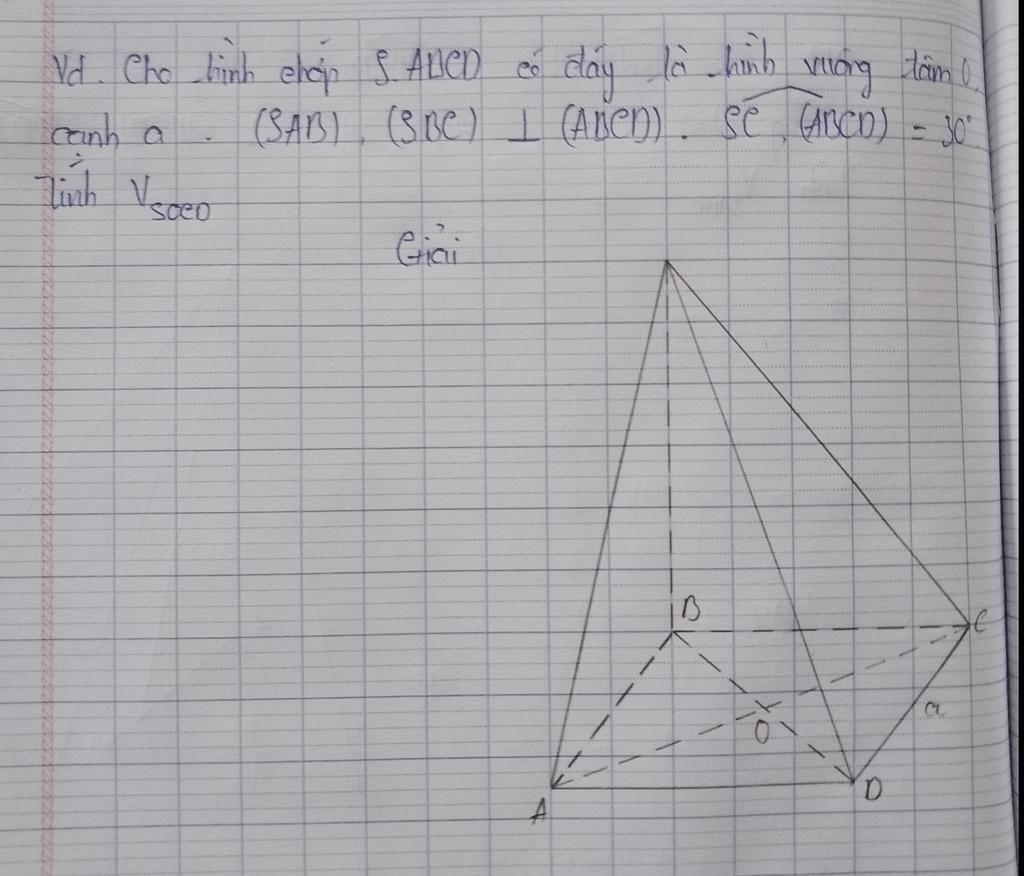 Vd. Cho hình chóp S.ABCD có đáy là hình vuông tâm O.
cạnh a. (SAB), (SBC) ⊥ (ABCD). SC, (ABCD) = 30°.
Tính V_SOCD
Giải
B
C
a
O
D
A